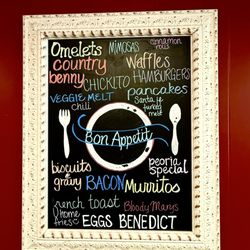 Omelets
MIMOSAS
cinnamon
rolls
country
benny
Waffles
CHICKITO
HAMBURGERS
VEGGIE MELT
pancakes
chili
Santa fe
turkey
melt
Bon Appetit
biscuits
gravy
BACON
peoria
special
Murritos
french toast
Bloody Marys
home
fries
EGGS BENEDICT